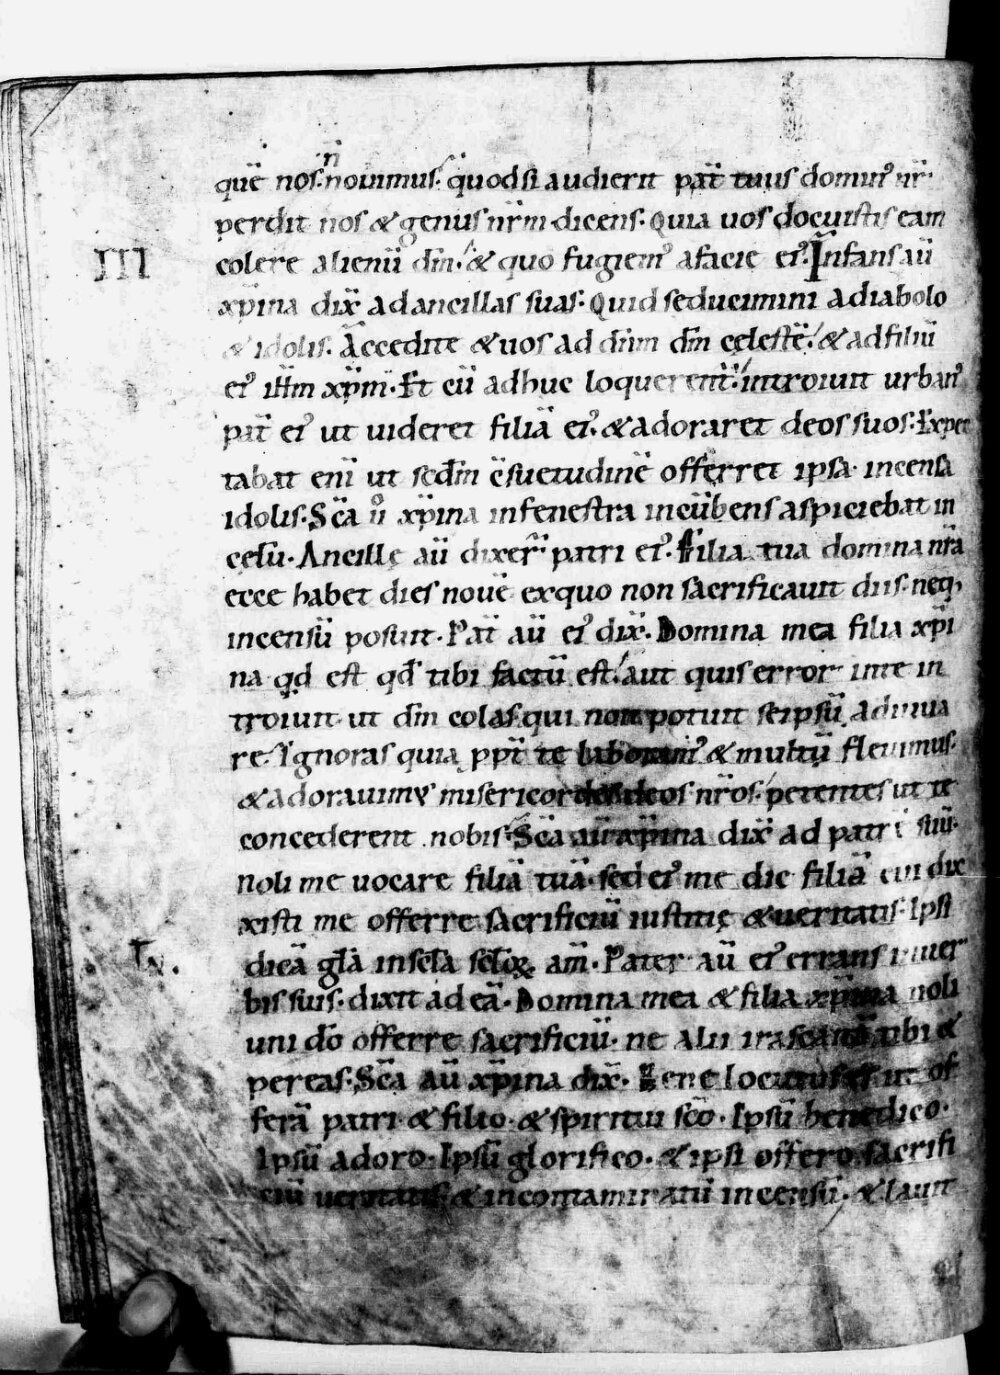 quē nos n̄ nouimus. quodsi audierit pat̄ tuus domin' nr̄.
perdit nos & genus nr̄m dicens. Quia uos docuistis eam
III colere alienū dm̄. & quo fugiem' afacie ei'. Infans aū
xp̄ina dix̄ adancillas suas. Quid seducimini adiabolo
& idolis. Accedite & uos ad dn̄m dm̄ cęlestē. & adfiliū
ei' ih̄m xp̄m. Et cū adhuc loquerent̄. introiuit urban'
pat̄ ei' ut uideret filiā ei'. & adoraret deos suos. Expec
tabat eni ut scdm̄ c̄suetudinē offerret ipsa incensa
idolis. Sc̄a u° xp̄ina infenestra incūbens aspiciebat in
cęlū. Ancillę aū dixer̄ patri ei'. Filia tua domina nr̄a
ecce habet dies nouē exquo non sacrificauit diis. neq;
incensū posuit. Pat̄ aū ei' dix̄. Domina mea filia xp̄i
na qd est qd̄ tibi factū est. aut quis error inte in
troiuit ut dm̄ colas qui non potuit seipsū adiuua
re. Ignoras quia ppt̄ te laborauim' & multū fleuimus.
& adorauimus misericordes deos nr̄os. petentes ut te
concederent nobis. Sc̄a aū xp̄ina dix̄ ad patrē suū.
noli me uocare filiā tuā. sed ei' me dic filiā cui dix
xisti me offerre sacrificiū iustitię & ueritatis. Ipsi
dicā gl̄a insęcl̄a sęcl̄oꝝ am̄. Pater aū ei' errans inuer
bis suis. dixit ad eā. Domina mea & filia xp̄ina noli
uni dō offerre sacrificiū. ne alii irascantur tibi &
pereas. Sc̄a aū xp̄ina dix̄. Bene locutus es ut of
ferā patri & filio & spiritui sc̄o. Ipsū benedico.
Ipsū adoro. Ipsū glorifico. & ipsi offero sacrifi
ciū ueritatis. & incontaminatū incensū. & lauit